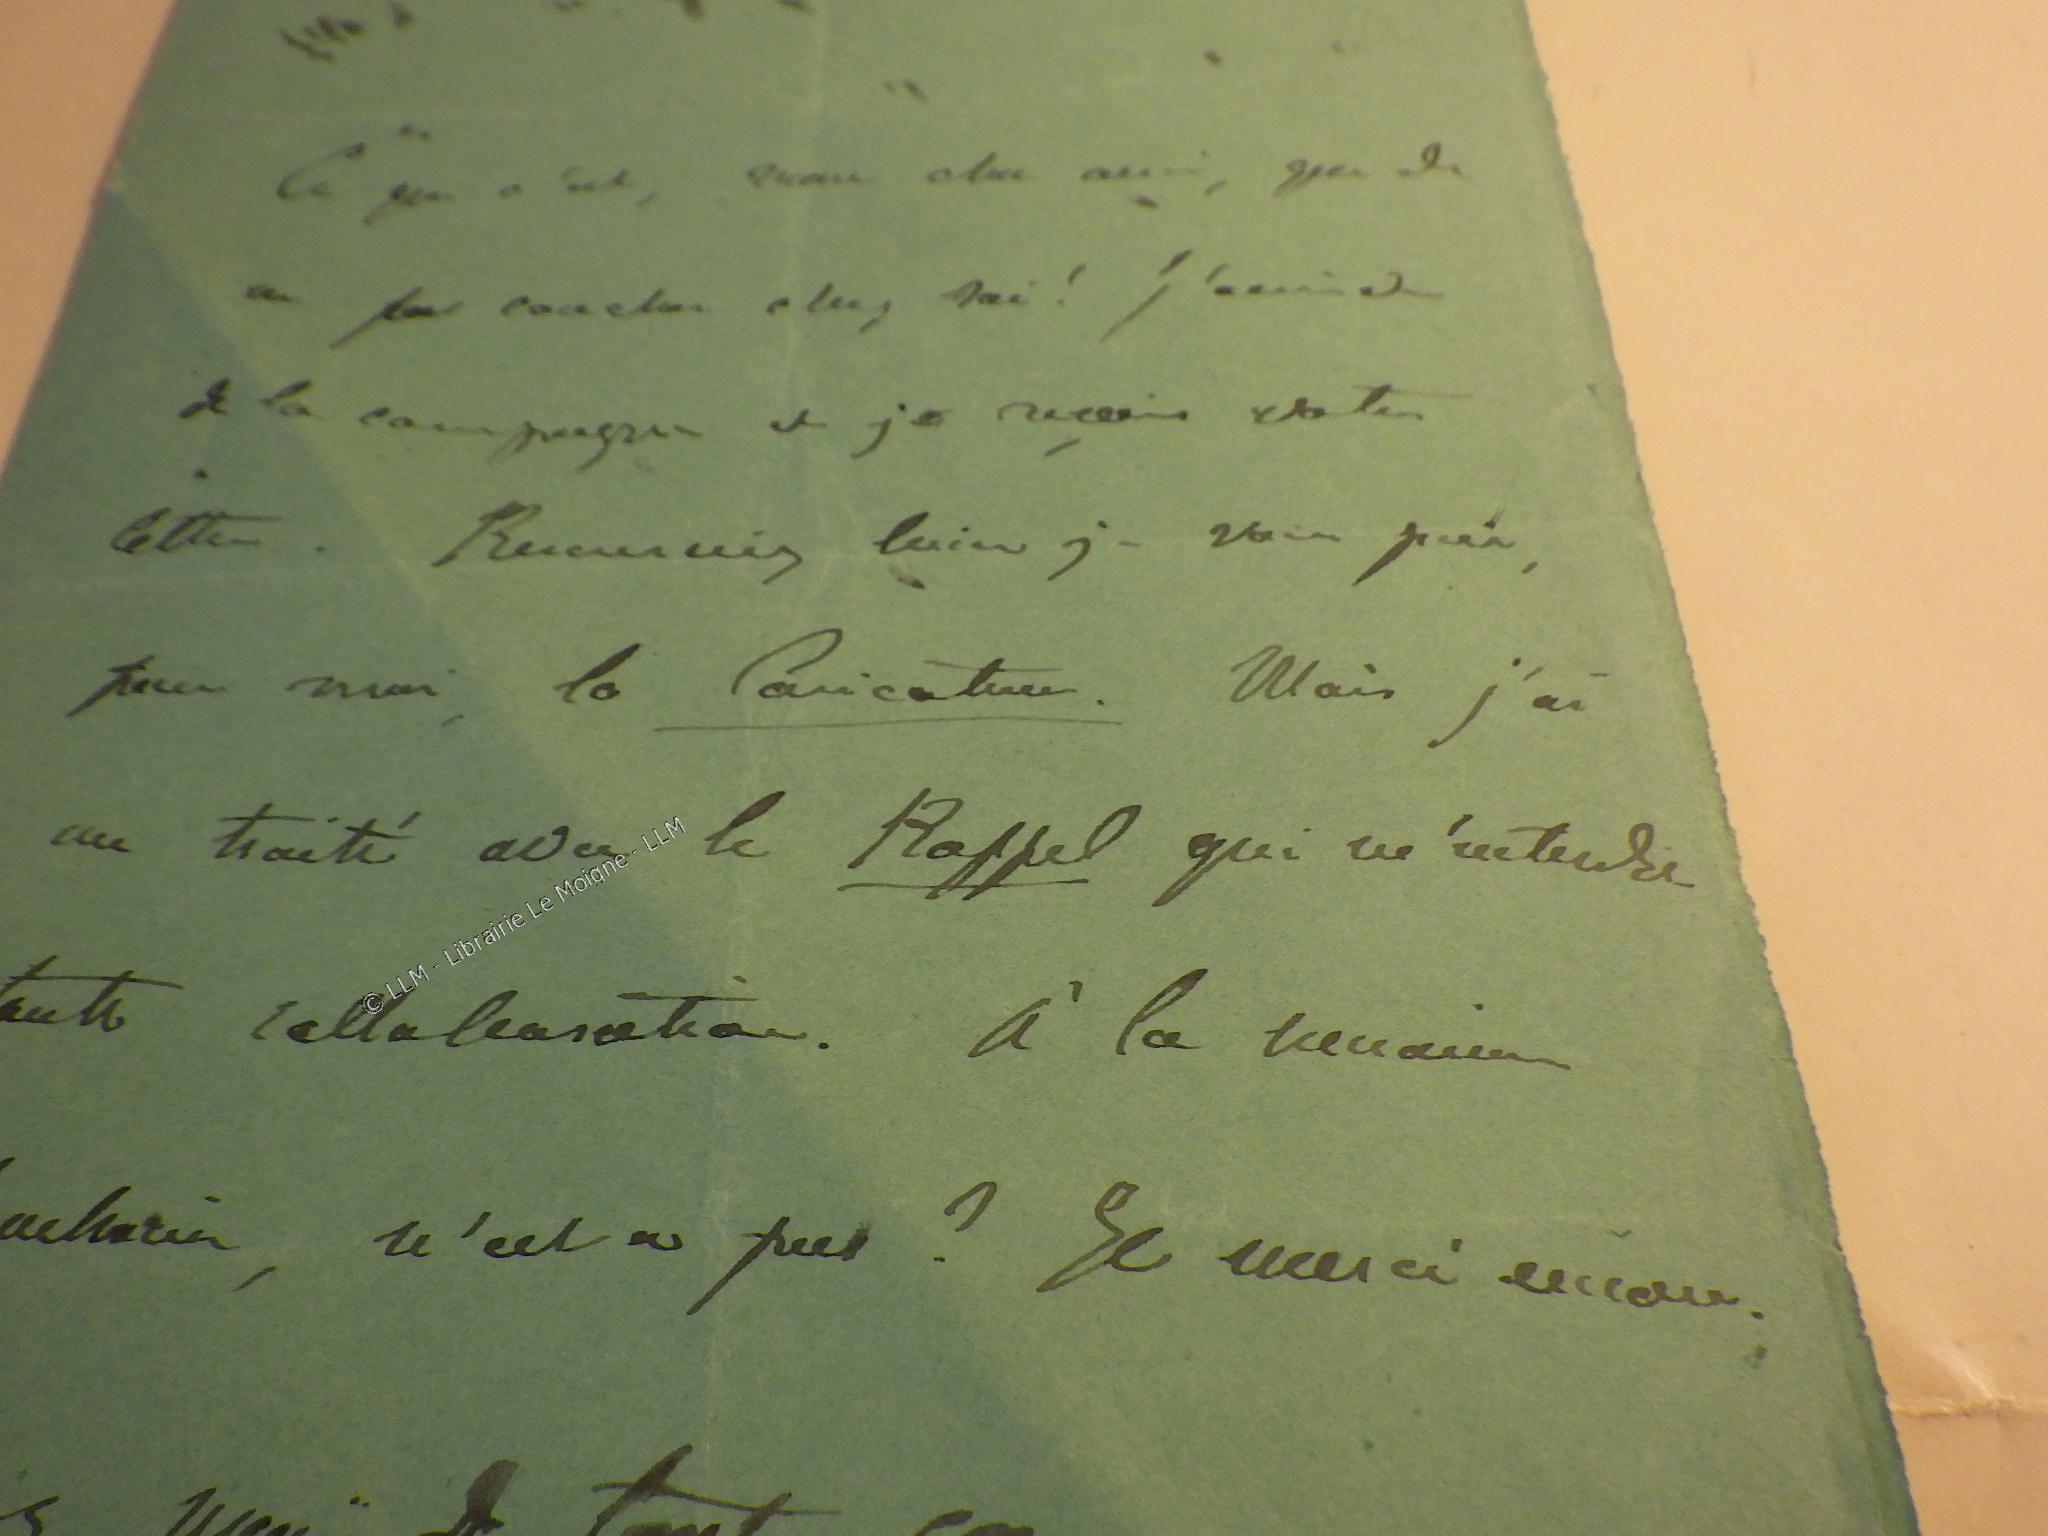 Ce que c'est, mon cher ami, que de
ne pas coucher chez soi! J'arrive
de la campagne et je reçois votre
lettre. Remerciez bien je vous prie,
pour moi, la Caricature. Mais j'ai
un traité avec le Rappel qui m'interdit
toute collaboration. À la semaine
prochaine, n'est-ce pas? Et merci encore.
de tout
© LLM - Librairie Le Moigne - LLM